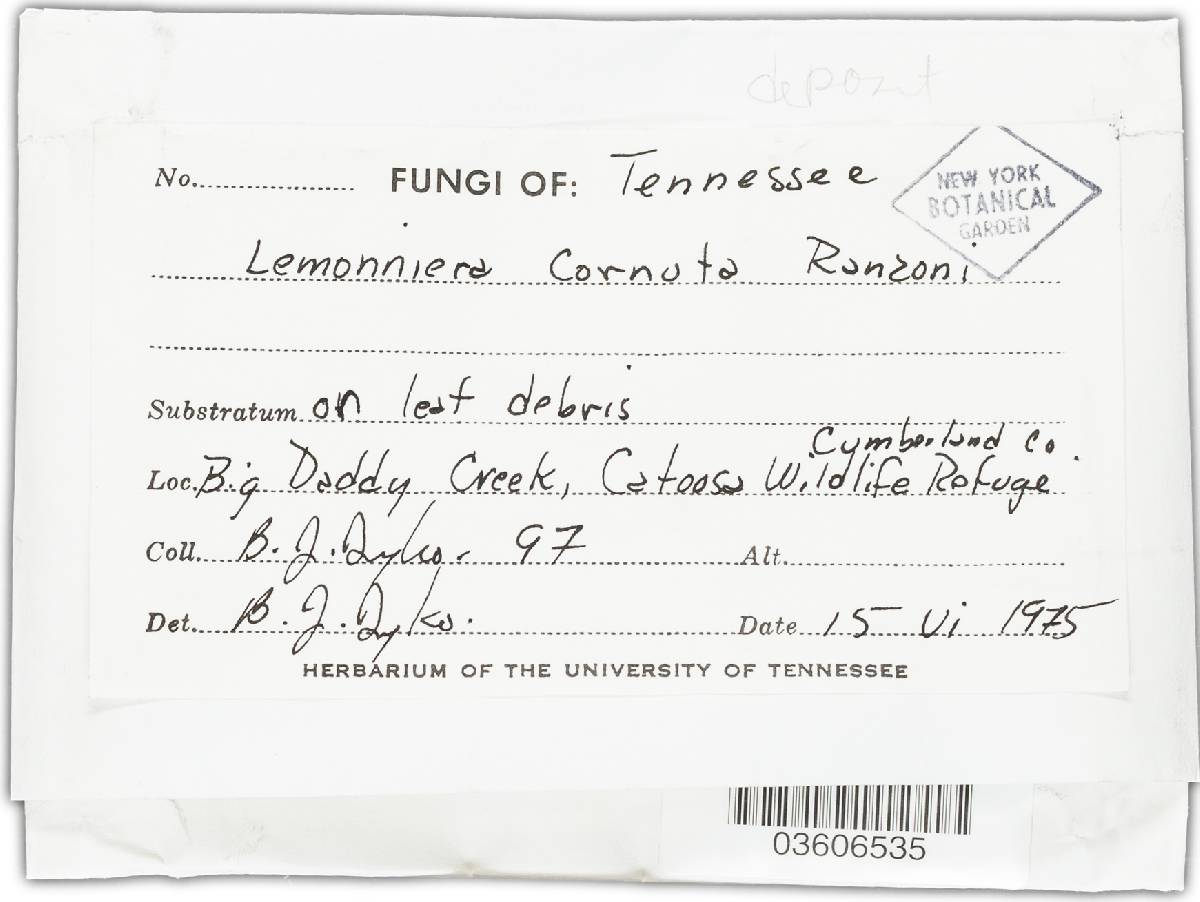 deposit
No. FUNGI OF: Tennessee
NEW YORK
BOTANICAL
GARDEN
Lemonniera Cornuta Ranzoni
Substratum on leaf debris
Cumberland Co.
Loc. Big Daddy Creek, Catoosa Wildlife Refuge
Coll. B. J. Dyko. 97 Alt.
Det. B. J. Dyko. Date 15 Vi 1975
HERBARIUM OF THE UNIVERSITY OF TENNESSEE
03606535